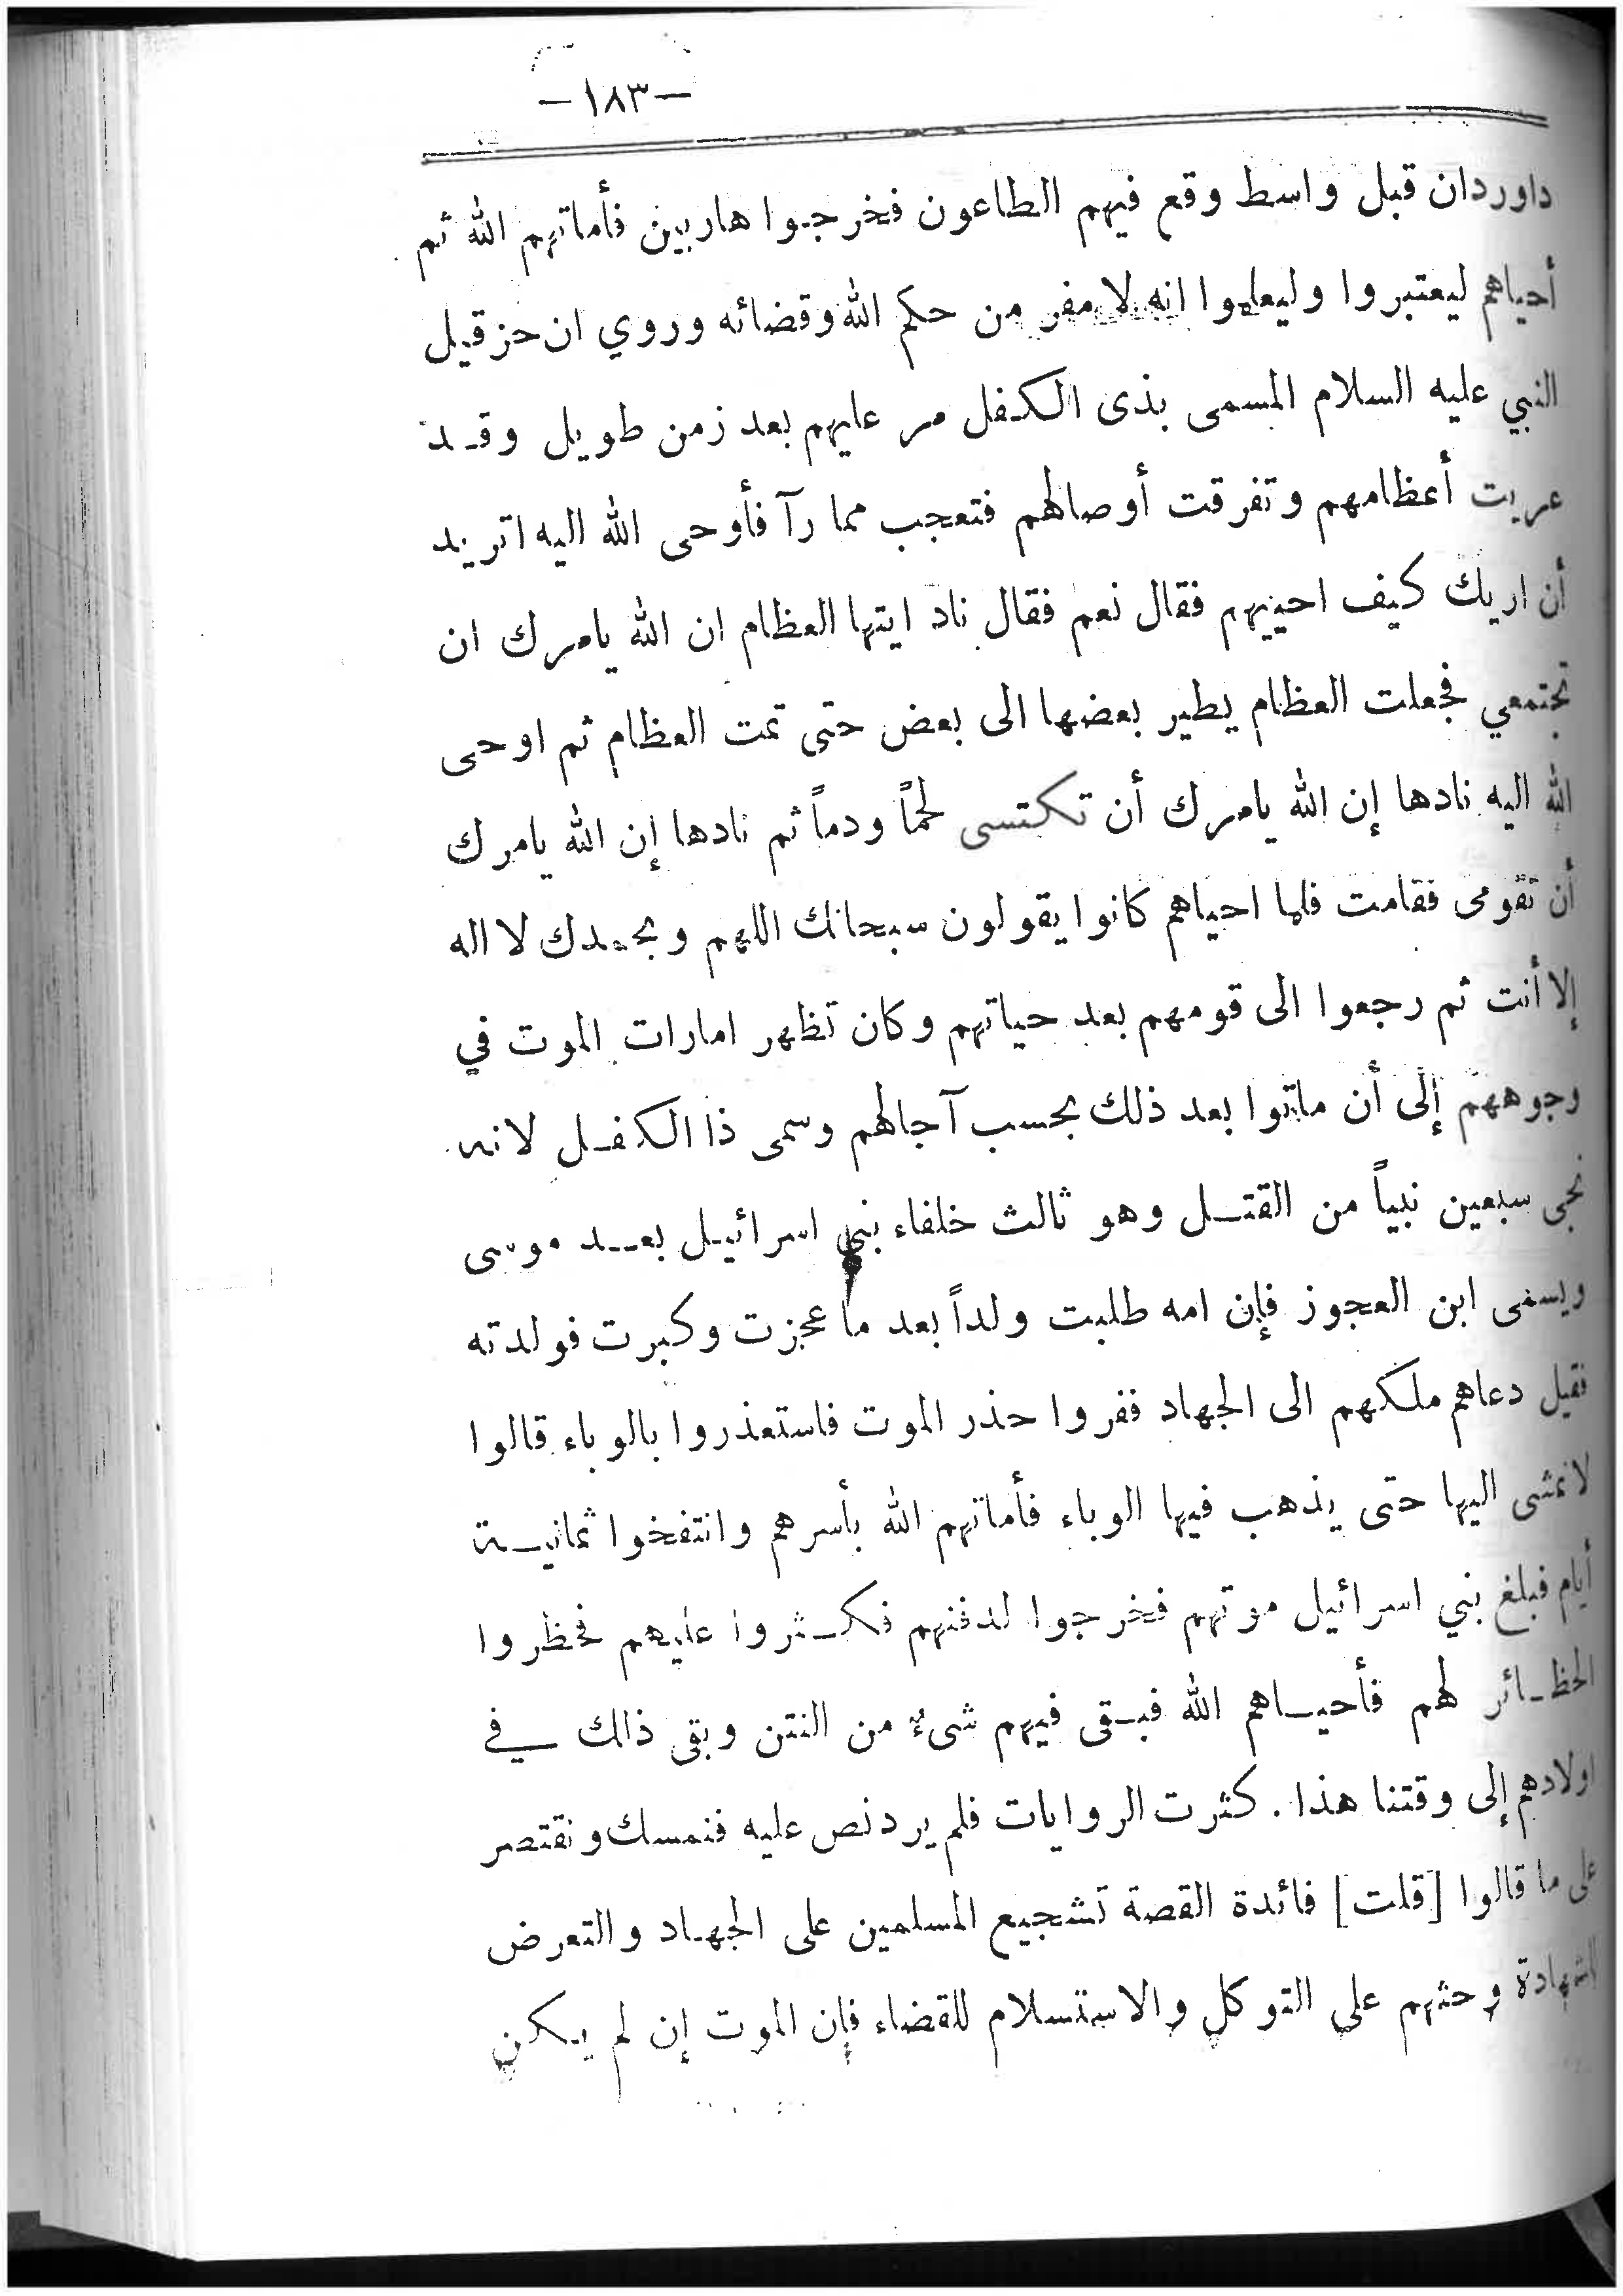 -١٨٣-
داوردان قبل واسط وقع فيهم الطاعون فخرجوا هاربين فأماتهم الله ثم
أحياهم ليعتبروا وليعلموا انه لا مفر من حكم الله وقضائه وروي ان حزقيل
النبي عليه السلام المسمى بذى الكفل مر عليهم بعد زمن طويل وقد
عريت أعظامهم وتفرقت أوصالهم فتعجب مما رآ فأوحى الله اليه اتريد
أن اريك كيف احييهم فقال نعم فقال ناد ايتها العظام ان الله يامرك ان
تجتمعي فجعلت العظام يطير بعضها الى بعض حتى تمت العظام ثم اوحى
الله اليه نادها إن الله يامرك أن تكتسى لحماً ودماً ثم نادها إن الله يامرك
أن تقومى فقامت فلما احياهم كانوا يقولون سبحانك اللهم وبحمدك لا اله
إلا أنت ثم رجعوا الى قومهم بعد حياتهم وكان تظهر امارات الموت في
وجوههم إلى أن ماتوا بعد ذلك بحسب آجالهم وسمى ذا الكفل لانه
نجى سبعين نبياً من القتل وهو ثالث خلفاء بني اسرائيل بعد موسى
ويسمى ابن العجوز فإن امه طلبت ولداً بعد ما عجزت وكبرت فولدته
فقيل دعاهم ملكهم الى الجهاد ففروا حذر الموت فاستعذروا بالوباء قالوا
لا نمشى اليها حتى يذهب فيها الوباء فأماتهم الله بأسرهم وانتفخوا ثمانية
أيام فبلغ بني اسرائيل موتهم فخرجوا لدفنهم فكثروا عليهم فحظروا
الحظائر لهم فأحياهم الله فبقى فيهم شىءٌ من النتن وبقى ذالك في
اولادهم إلى وقتنا هذا. كثرت الروايات فلم يرد نص عليه فنمسك ونقتصر
على ما قالوا [قلت] فائدة القصة تشجيع المسلمين على الجهاد والتعرض
للشهادة وحثهم على التوكل والاستسلام للقضاء فإن الموت إن لم يكن